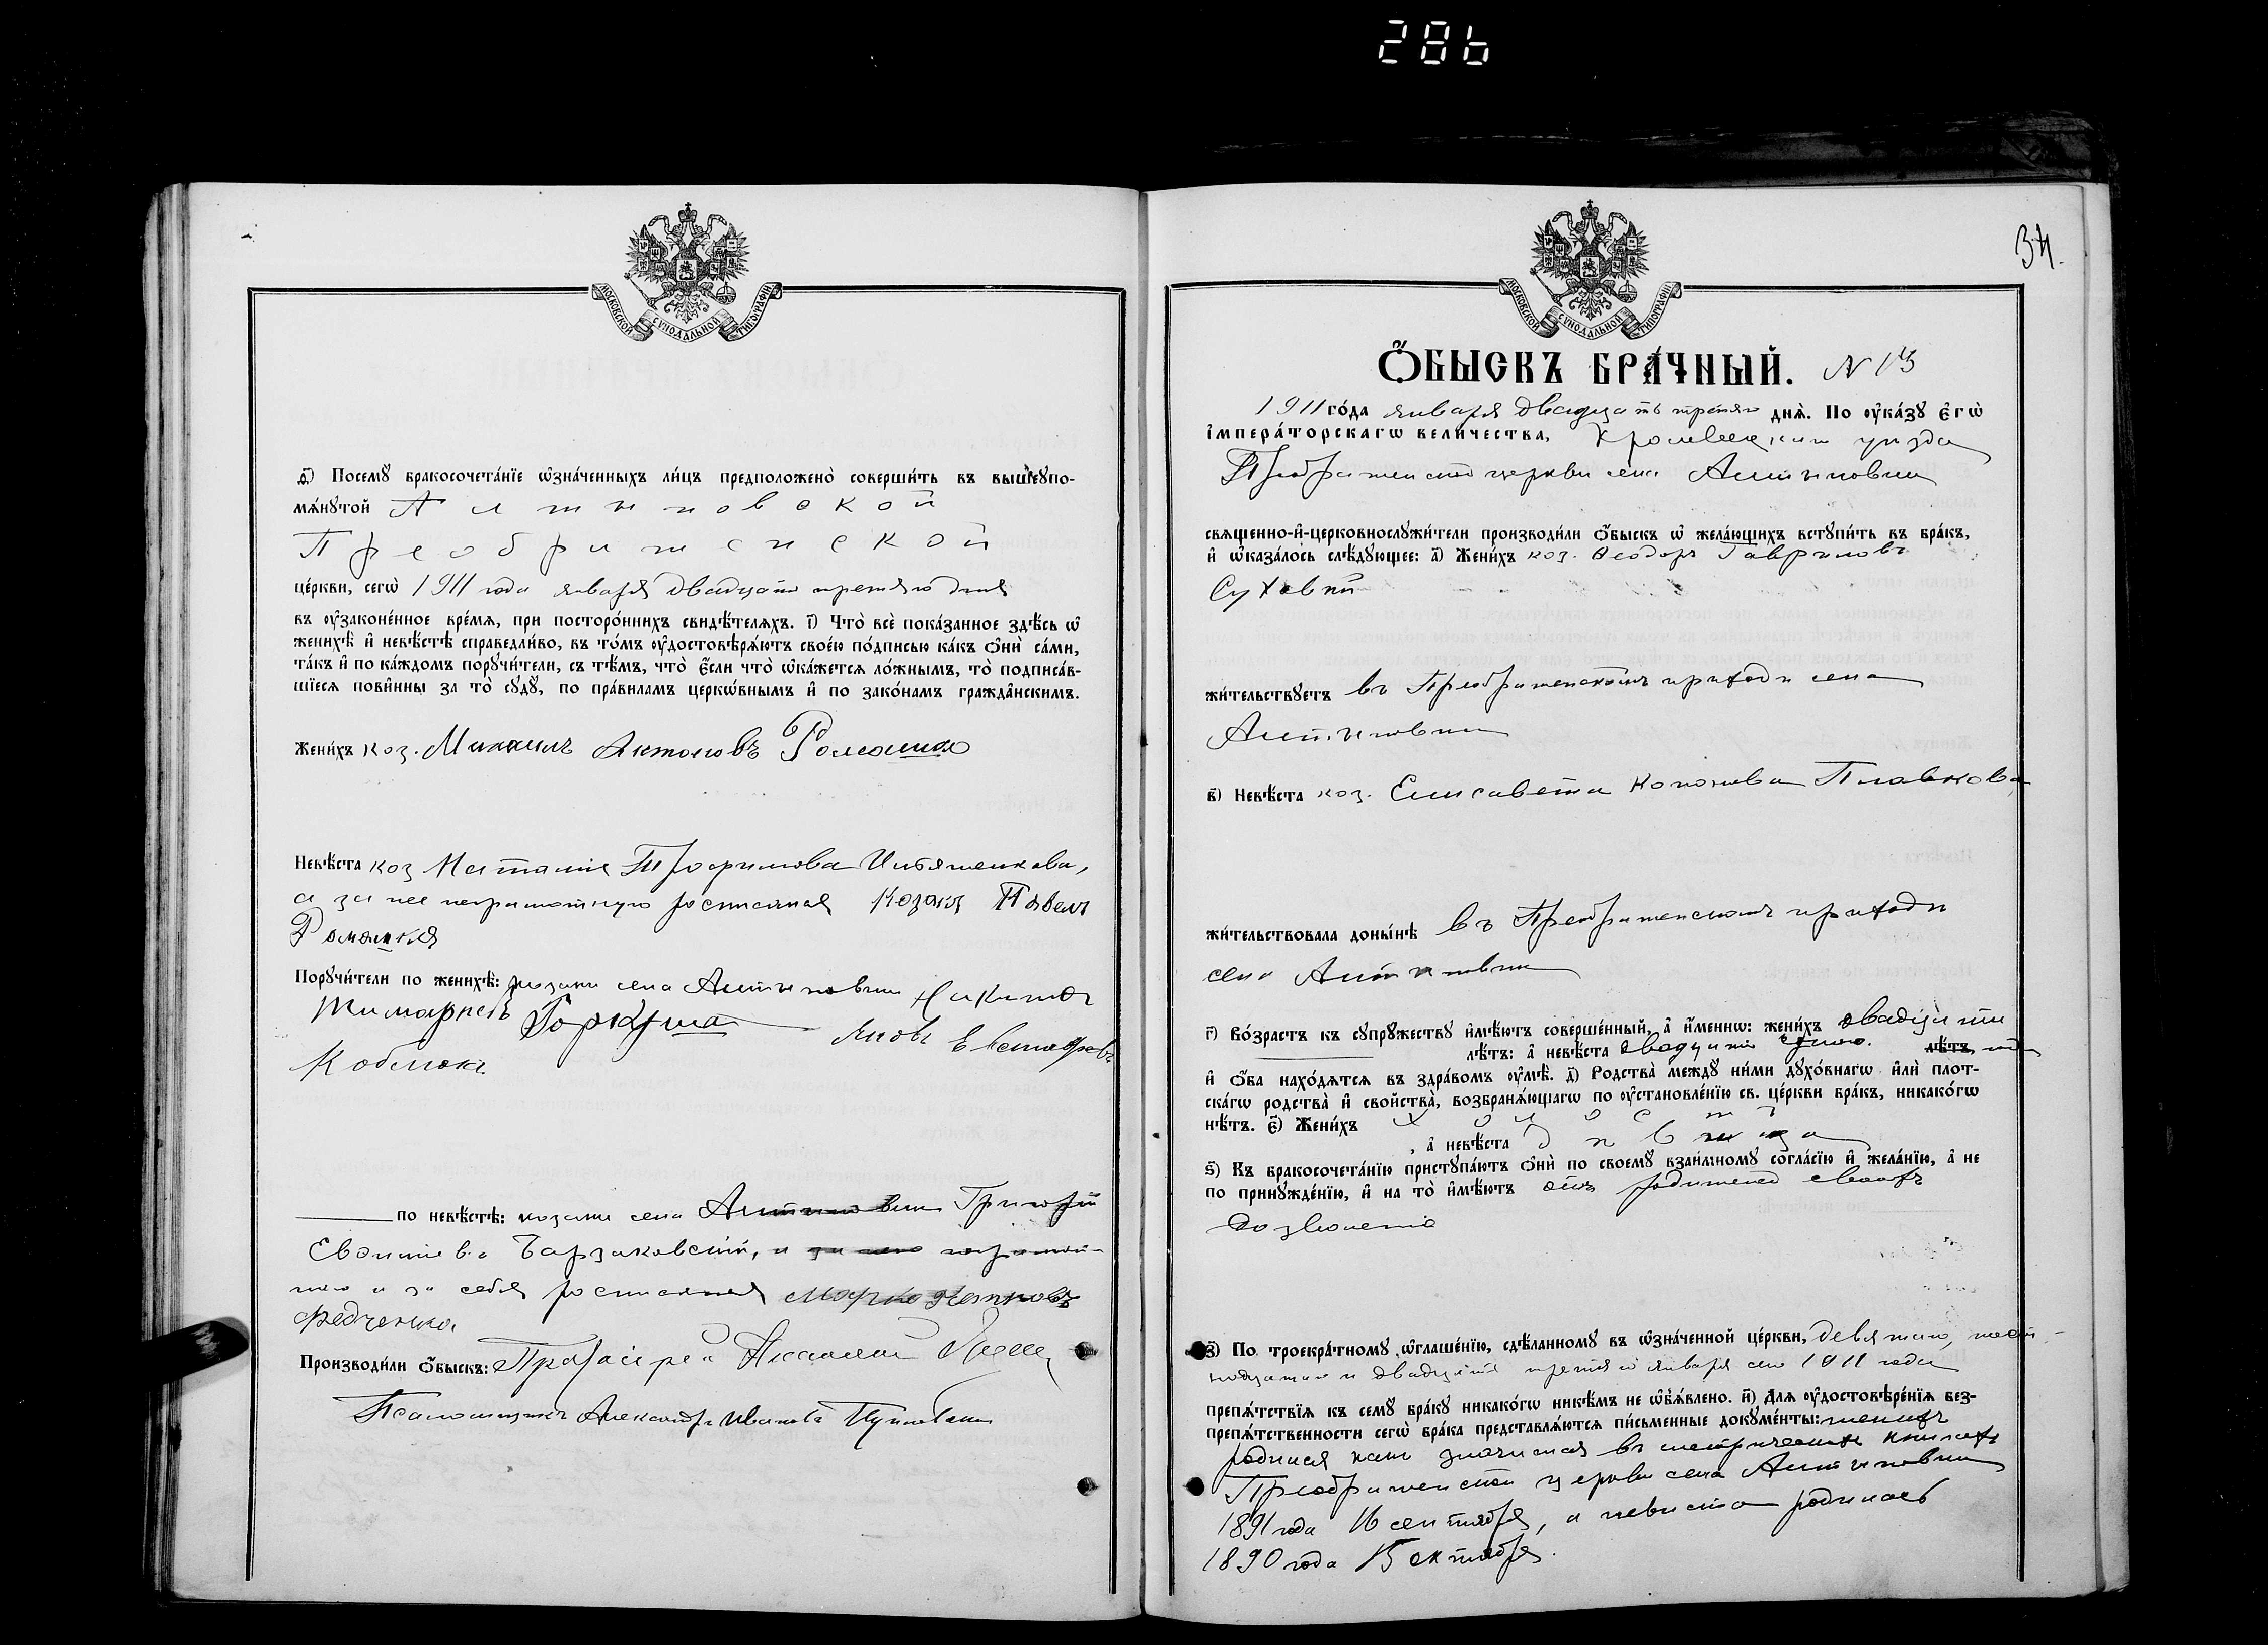 286
МОСКОВСКОЙ СѴНОДАЛЬНОЙ ТИПОГРАФІИ
ѳ҃) Посемꙋ̀ бракосочета́нїе ѡ҆зна́ченныхъ ли́цъ предположено̀ соверши́ть въ вышеꙋпо-
мѧ́нꙋтой Алтыновской
Преображенской
це́ркви, сегѡ̀ 1911 года января двадцать третьяго дня
въ ᲂу҆законе́нное вре́мѧ, при посторо́ннихъ свидѣ́телѧхъ. і҃) Что̀ всѐ пока́занное здѣ́сь ѡ҆
женихѣ̀ и҆ невѣ́стѣ справедли́во, въ то́мъ ᲂу҆достовѣрѧ́ютъ свое́ю по́дписью ка́къ ѻ҆нѝ са́ми,
та́къ и҆ по ка́ждомъ порꙋчи́тели, съ тѣ́мъ, что̀ є҆́сли что̀ ѡ҆ка́жетсѧ ло́жнымъ, то̀ подписа́в-
шїесѧ пови́нны за то̀ сꙋдꙋ̀, по пра́виламъ церкѡ́внымъ и҆ по зако́намъ гражда́нскимъ.
Жени́хъ коз. Михаилъ Антоновъ Романко
Невѣ́ста коз Наталія Трофимова
а за нее неграмотную росписался козакъ Павелъ
Романко
Порꙋчи́тели по женихѣ̀: козаки села Алтыновки Никита
Горкуша Яковъ Евстафьевъ
по невѣ́стѣ: козаки села Алтыновки Григорій
Барзаковскій, и за него неграмот-
наго и за себя росписался Марко
Федченко.
Производи́ли ѻ҆́быскъ: Протоіерей Николай
Псаломщикъ Александръ Ивановъ
34.
МОСКОВСКОЙ СѴНОДАЛЬНОЙ ТИПОГРАФІИ
Ѻ҆́БЫСКЪ БРА́ЧНЫЙ. N 13
1911 го́да января двадцать третьяго днѧ̀. По ᲂу҆ка́зꙋ Є҆гѡ̀
І҆мпера́торскагѡ вели́чества, Кролевецкаго уѣзда
Преображенской церкви села Алтыновки
свѧще́нно-и҆-церковнослꙋжи́тели производи́ли ѻ҆́быскъ ѡ҆ жела́ющихъ встꙋпи́ть въ бра́къ,
и҆ ѡ҆каза́лось слѣ́дꙋющее: а҃) Жени́хъ коз. Ѳеодоръ Гавриловъ
Суховій
жи́тельствꙋетъ въ Преображенскомъ приходѣ села
Алтыновки
в҃) Невѣ́ста коз. Елисавета Кононова Плавкова,
жи́тельствовала доны́нѣ въ Преображенскомъ приходѣ
села Алтыновки
г҃) Во́зрастъ къ сꙋпрꙋ́жествꙋ и҆мѣ́ютъ соверше́нный, а҆ и҆́меннѡ: жени́хъ двадцати
лѣ́тъ: а҆ невѣ́ста двадцати одного лѣ́тъ года
и҆ ѻ҆́ба нахо́дѧтсѧ въ здра́вомъ ᲂу҆мѣ̀. д҃) Родства̀ междꙋ̀ ни́ми дꙋхо́внагѡ и҆лѝ плот-
ска́гѡ родства̀ и҆ свойства̀, возбранѧ́ющагѡ по ᲂу҆становле́нїю св. це́ркви бра́къ, никако́гѡ
нѣ́тъ. є҃) Жени́хъ холостъ
, а҆ невѣ́ста дѣвица
ѕ҃) Къ бракосочета́нїю пристꙋпа́ютъ ѻ҆нѝ по своемꙋ̀ взаи́мномꙋ согла́сїю и҆ жела́нїю, а҆ не
по принꙋжде́нїю, и҆ на то̀ и҆мѣ́ютъ отъ родителей своихъ
дозволеніе
з҃) По троекра́тномꙋ ѡ҆глаше́нїю, сдѣ́ланномꙋ въ ѡ҆зна́ченной це́ркви, девятаго, шест-
надцатаго и двадцать третьяго января сего 1911 года
препѧ́тствїѧ къ семꙋ̀ бра́кꙋ никако́гѡ никѣ́мъ не ѡ҆б̾ѧ́влено. и҃) Длѧ ᲂу҆достовѣре́нїѧ без-
препѧ́тственности сегѡ̀ бра́ка представлѧ́ютсѧ пи́сьменные докꙋме́нты: женихъ
родился какъ значится въ метрическихъ книгахъ
Преображенской церкви села Алтыновки
1891 года 16 сентября, а невѣста родилась
1890 года 15 октября.